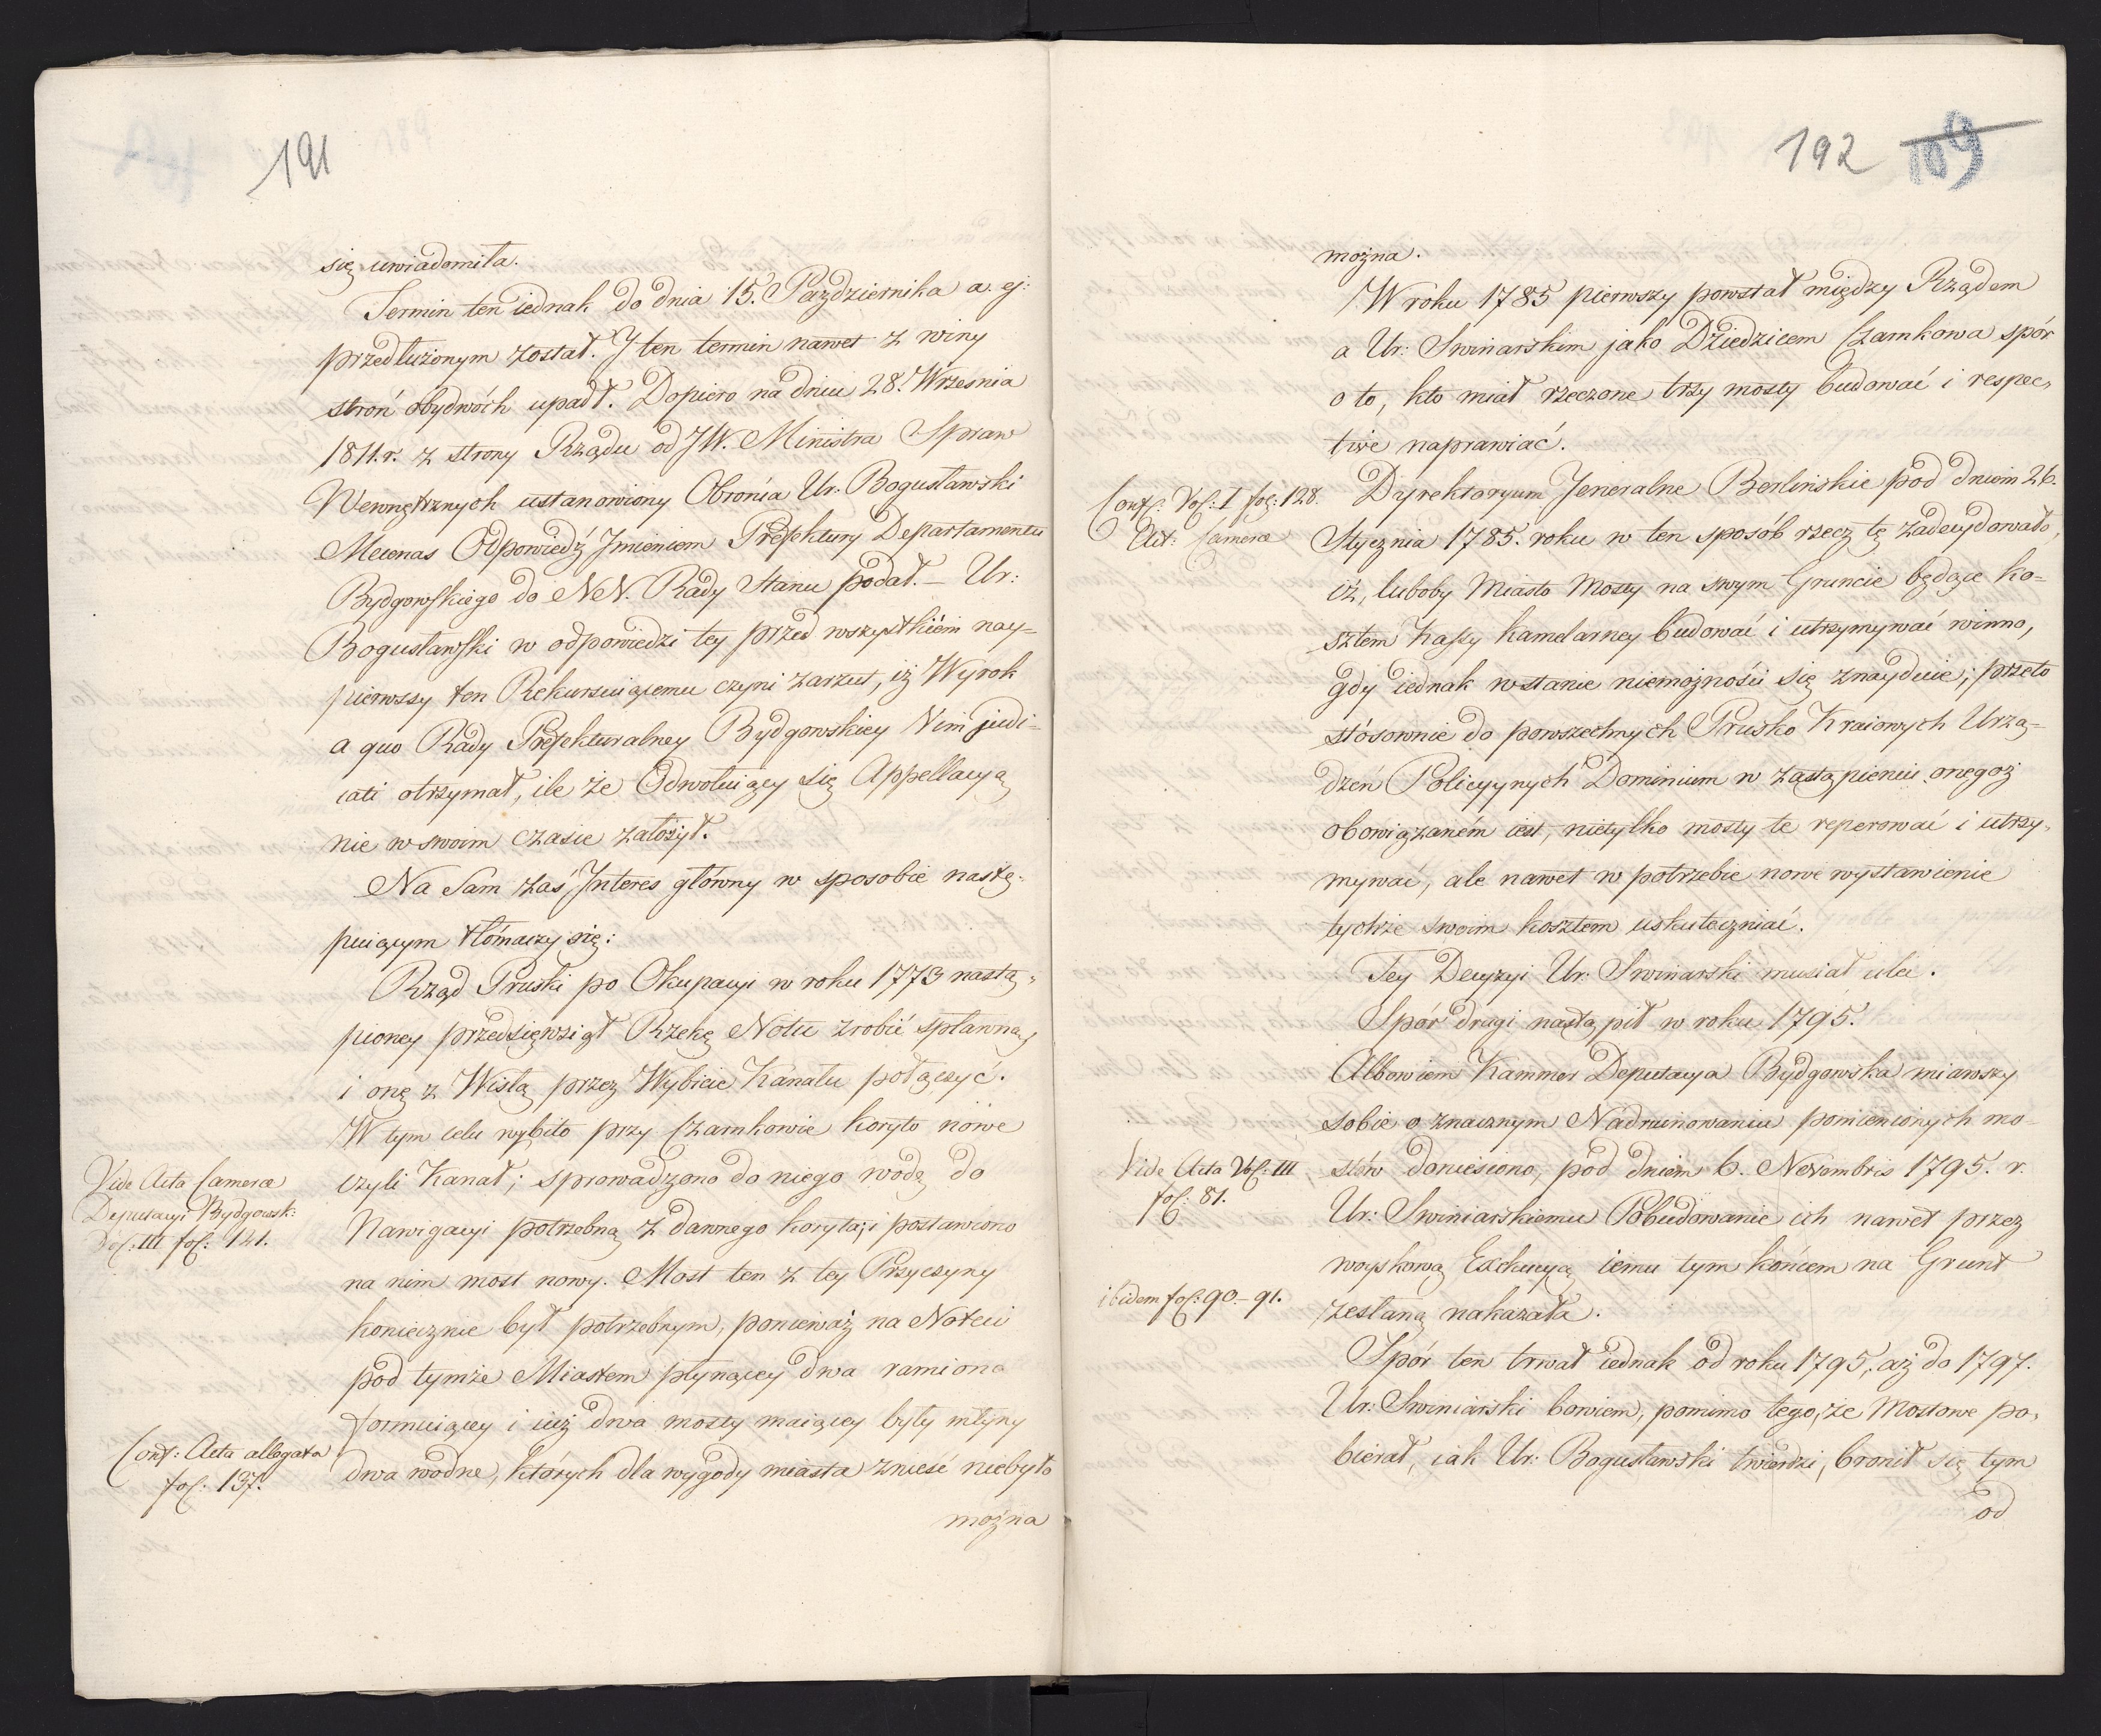 191
się uwiadomiła.
Termin ten iednak do dnia 15. Października a. ej:
przedłużonym został. J ten termin nawet z winy
stron obydwóch upadł. Dopiero na dniu 28. Wrzesnia
1811. r. z strony Rządu od JW. Ministra Spraw
Wewnętrznych ustanowiony Obrońca Ur. Bogusławski
Mecenas Odpowiedź Jmieniem Prefektury Departamentu
Bydgowskiego do NeN. Rady Stanu podał. — Ur:
Bogusławski w odpowiedzi tey przed wszystkiém nay-
pierwszy ten Rekursuiącemu czyni zarzut, iż Wyrok
a quo Rady Prefekturalney Bydgowskiey Vim judi-
cati otrzymał, ile że Odwołuiący się Appellacyą
nie w swoim czasie założył.
Na Sam zaś Jnteres główny w sposobie nastę-
puiącym tłómaczy się:
Rząd Pruski po Okupacyi w roku 1773 nastą-
pioney przedsięwziął Rzekę Notu zrobić spławną,
i onę z Wisłą przez Wybicie Kanału połączyć.
W tym celu wybito przy Czarnkowie koryto nowe
Vide Acta Camerae
Deputacyi Bydgowsk:
Vol: III fol: 141.
czyli Kanał; sprowadzono do niego wodę do
Nawigacyi potrzebną z dawnego koryta; i postawiono
na nim most nowy. Most ten z tey Przyczyny
koniecznie był potrzebnym, ponieważ na Noteci
pod tymże Miastem płynącey dwa ramiona
formuiącey i iuż dwa mosty maiącey były młyny
Conf: Acta allegata
fol: 137.
dwa wodne, których dla wygody miasta znieść niebyło
można
192 109
można.
W roku 1785 pierwszy powstał między Rządem
a Ur: Swinarskim jako Dziedzicem Czarnkowa spór
o to, kto miał rzeczone trzy mosty budować i respec-
tive naprawiać.
Conf: Vol: I fol: 128.
Act: Camerae
Dyrektoryum Jeneralne Berlińskie pod dniem 26.
Stycznia 1785. roku w ten sposób rzecz tę zadecydowało,
iż, luboby Miasto Mosty na swym Gruncie będące ko-
sztem Kassy Kamelarney budować i utrzymywać winno,
gdy iednak w stanie niemożności się znayduie; przeto
stósownie do powszechnych Prusko Kraiowych Urzą-
dzeń Policyynych Dominium w zastąpieniu onegoż
obowiązaném iest, nietylko mosty te reperować i utrzy-
mywać, ale nawet w potrzebie nowe wystawienie
tychże swoim kosztem uskuteczniać.
Tey Decyzyi Ur: Swinarski musiał uledz.
Spór drugi nastąpił w roku 1795.
Albowiem Kammer Deputacya Bydgowska miawszy
sobie o znacznym Nadruinowaniu pomienionych mo-
Vide Acta Vol: III
fol: 81.
stów doniesiono, pod dniem 6. Novembris 1795. r.
Ur: Swiniarskiemu Pobudowanie ich nawet przez
woyskową Exekucyą iemu tym końcem na Grunt
ibidem fol: 90–91.
zesłaną nakazała.
Spór ten trwał iednak od roku 1795, aż do 1797.
Ur: Swiniarski bowiem, pomimo tego, że Mostowe po-
bierał, iak Ur: Bogusławski twierdzi, bronił się tym
od